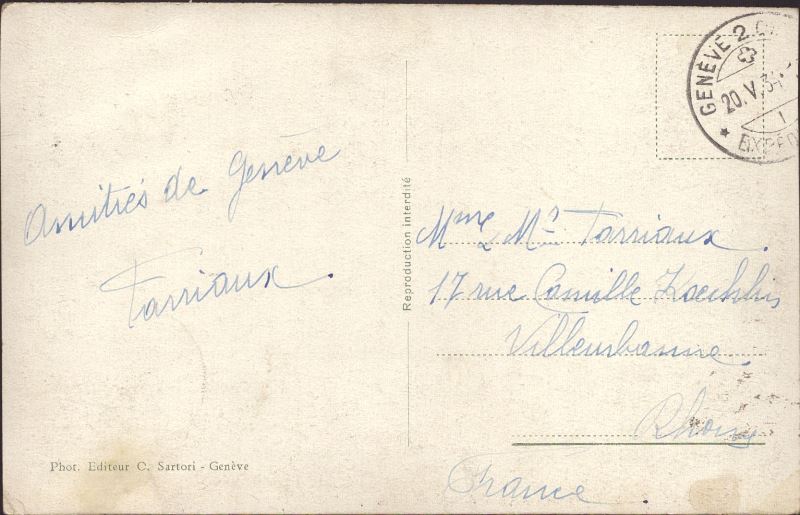 Amitiés de Genève
Tarriaux.
Phot. Editeur C. Sartori - Genève
Reproduction interdite
GENÈVE 2
20.V.34
Mme & Mr Tarriaux.
17 rue Camille Koechlin
Villeurbanne
Rhône
France